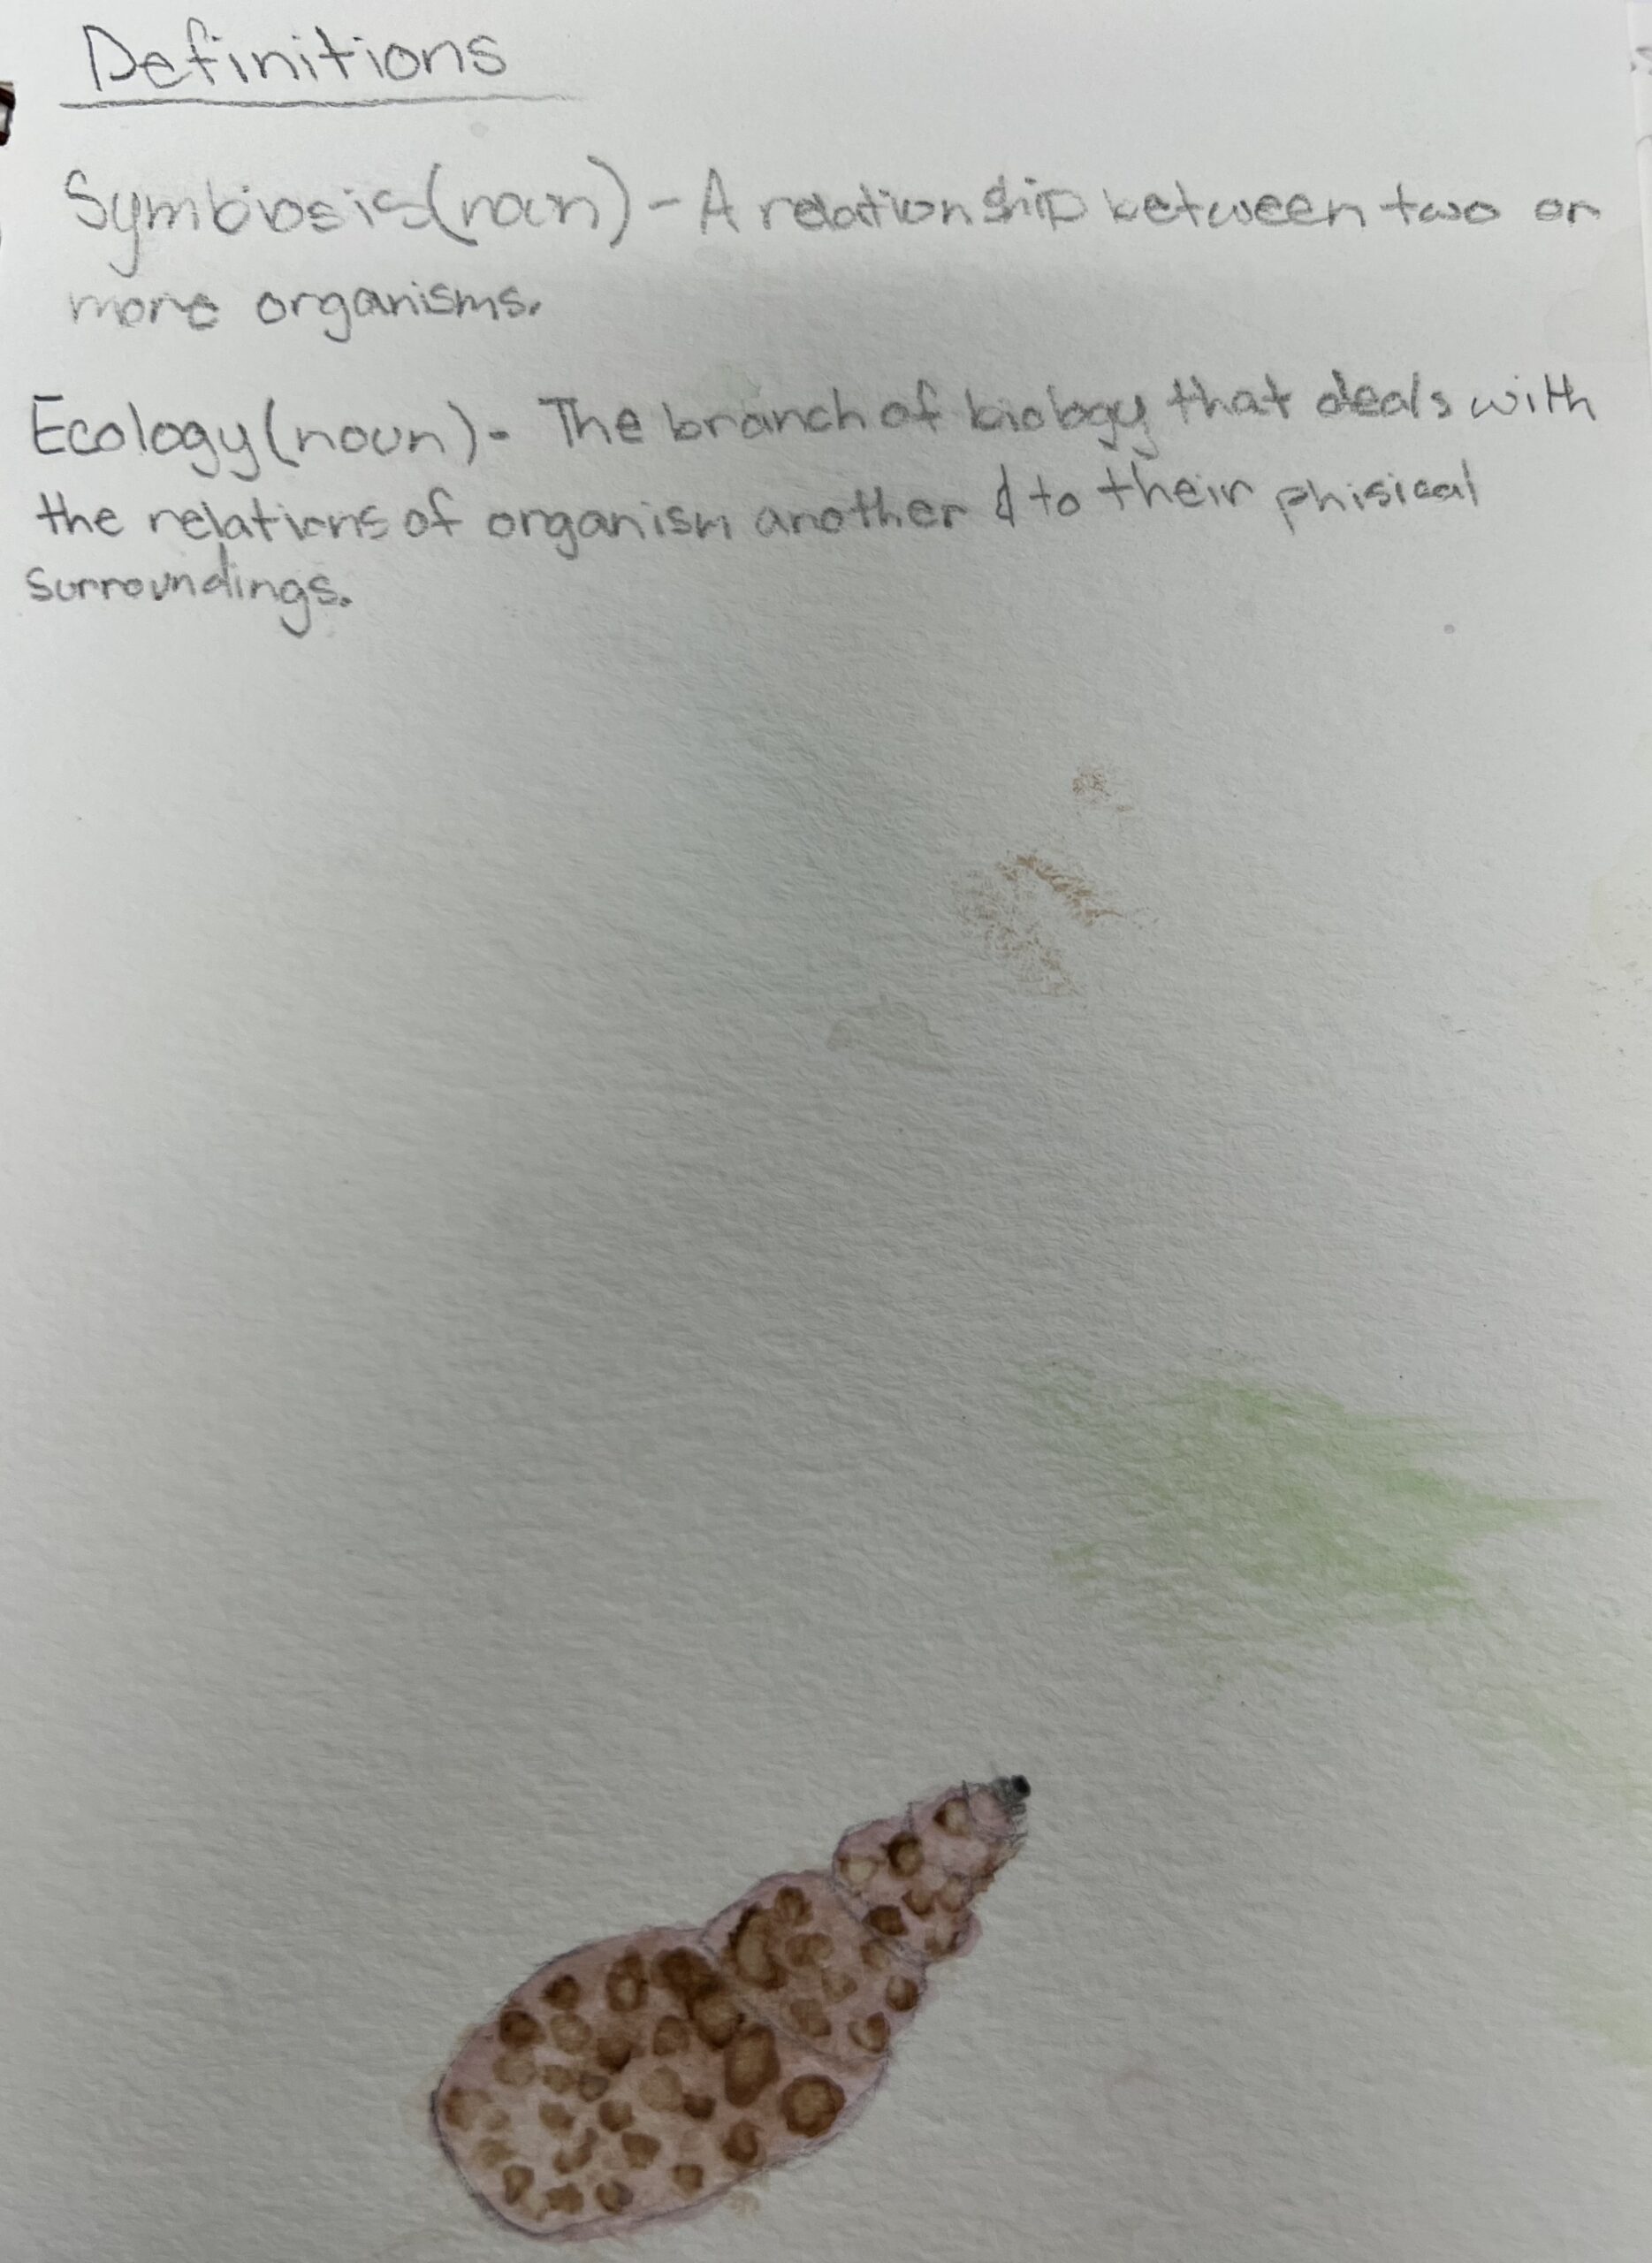 Definitions
Symbiosis (noun) - A relationship between two or
more organisms.
Ecology (noun) - The branch of biology that deals with
the relations of organism another & to their phisical
surroundings.